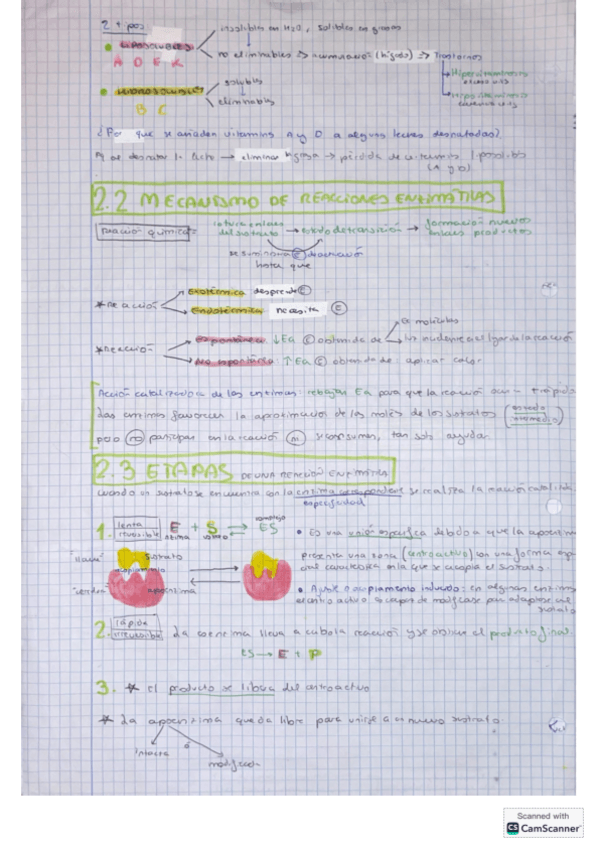 2 tipos
insolubles en H2O, solubles en grasas
LIPOSOLUBLES
no eliminables → acumulación (hígado) → Trastornos
A D E K
Hipervitaminosis
Hipovitaminosis
solubles
HIDROSOLUBLES
eliminables
B C
¿Por que se añaden vitaminas A y D a algunas leches desnatadas?
Al desnatar la leche → eliminar grasa → pérdida de vitaminas liposolubles
(A y D)
2.2 MECANISMO DE REACCIONES ENZIMÁTICAS
reacción química
rotura enlaces
del sustrato → estado de transición → formación nuevos
enlaces productos
se suministra E activación
hasta que
* Reacción
Exotérmica desprende E
Endotérmica necesita E
* Reacción
Espontánea ↓Ea E obtenida de
no espontánea: ↑Ea E obtenida de: aplicar calor
Acción catalizadora de las enzimas: rebajar Ea para que la reacción ocurra + rápido
Las enzimas favorecen la aproximación de las moléc de los sustratos
pero no participan en la reacción ni se consumen, tan solo ayudan
2.3 ETAPAS DE UNA REACCIÓN ENZIMÁTICA
Cuando un sustrato se encuentra con la enzima correspondiente se realiza la reacción catalítica
especificidad
1. lenta
reversible
E + S ⇄ ES
enzima
complejo
• Es una unión específica debido a que la apoenzima
presenta una zona (centro activo) con una forma esp
cial característica en la que se acopla el sustrato
"llave"
sustrato
acoplamiento
apoenzima
• Ajuste o acoplamiento inducido: en algunas enzimas
el centro activo es capaz de modificarse para adaptarse al
sustrato
2. rápida
irreversible
La coenzima lleva a cabo la reacción y se obtiene el producto final
ES → E + P
3. * el producto se libera del centro activo
* La apoenzima queda libre para unirse a un nuevo sustrato
intacta
ó
modificada
Scanned with
CS CamScanner